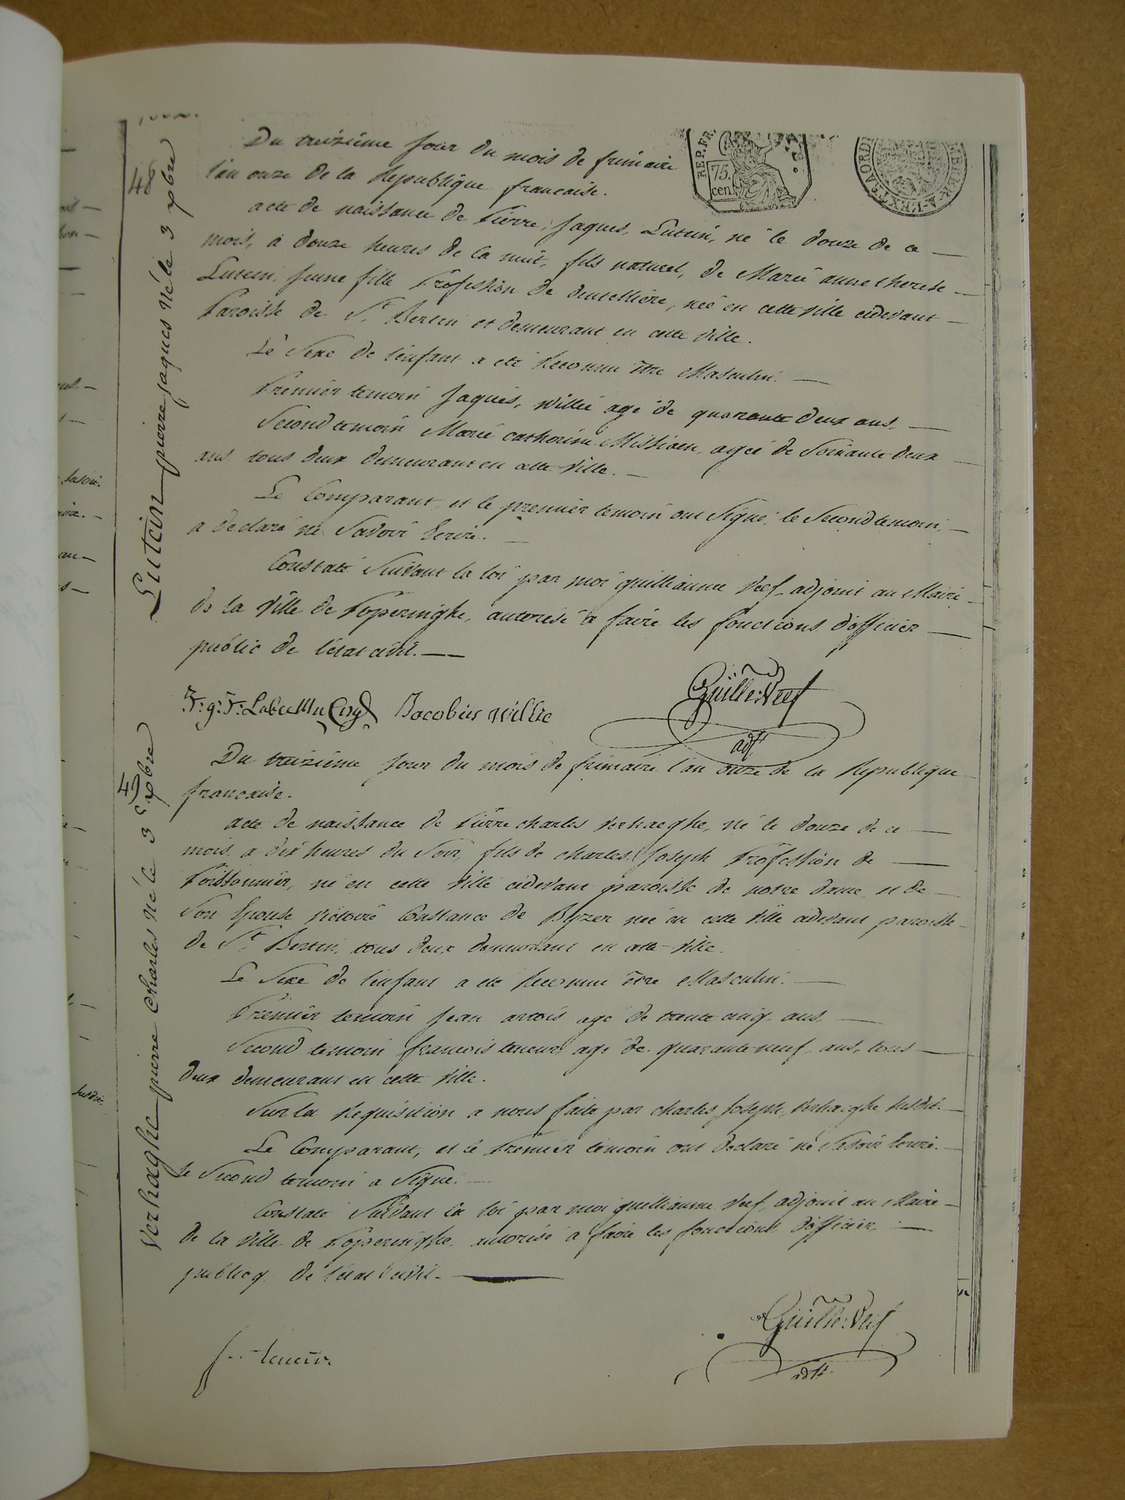 48
Lutein pierre jaques né le 3 xbre
REP. FR.
75
cen
Du treizième jour du mois de frimaire
l'an onze de la République française.
acte de naissance de Pierre, Jaques, Lutein, né le douze de ce
mois, à douze heures de la nuit, fils naturel, de Marie anne therese
Lutein, jeune fille Profession de dentellière, née en cette ville cidevant
Paroisse de St Bertin et demeurant en cette ville.
Le Sexe de l'enfant a eté Reconnu être Masculin.
Premier temoin Jaques, Willie agé de quarante deux ans.
Second temoin Marie catherine Missiaen, agée de Soixante deux
ans tous deux demeurant en cette ville.
Le Comparant, et le premier temoin ont Signé, le Second temoin,
a declaré ne Savoir Ecrire.
Constaté Suivant la loi par moi guilliaume Veef, adjoint au Maire
de la Ville de Poperinghe, autorisé à faire les fonctions d'officier
public de l'état civil.
Jacobus Willie
Guille: Veef
adt
49
Verhaghe pierre Charles né le 3 xbre
Du treizième jour du mois de frimaire l'an onze de la République
française.
acte de naissance de Pierre charles Verhaeghe, né le douze de ce
mois, a dix heures du Soir, fils de charles Joseph Profession de
Poissonnier, né en cette ville cidevant paroisse de notre dame et de
Son Epouse Victoire Constance de Byzer née en cette ville cidevant paroisse
de St Bertin, tous deux demeurant en cette ville.
Le Sexe de l'enfant a eté Reconnu être Masculin.
Premier temoin Jean artois agé de trente cinq ans.
Second temoin francois teneur agé de quarante neuf ans, tous
deux demeurant en cette ville.
Sur la Requisition a nous faite par charles Joseph Verhaeghe Susdit.
Le Comparant, et le Premier temoin ont declaré ne Savoir Ecrire.
le Second temoin a Signé.
Constaté Suivant la loi par moi guilliaume Veef, adjoint au Maire
de la Ville de Poperinghe autorisé a faire les fonctions d'officier
publicq de l'état civil.
f teneur
Guille: Veef
adt